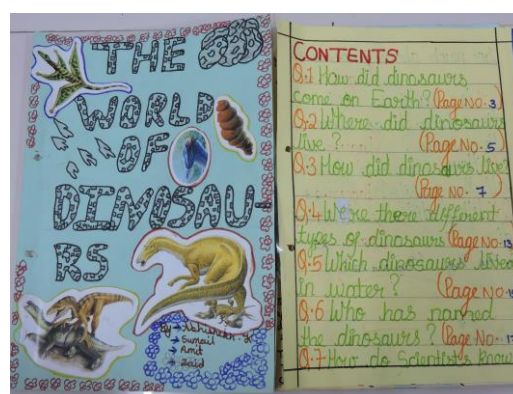 THE
WORLD
OF
DINOSAU-
RS
By → Abhishek . K
→ Sumail
→ Amit
→ Zaid
CONTENTS
Q.1 How did dinosaurs
come on Earth? (Page No. 3)
Q.2 Where did dinosaurs
live? (Page No. 5)
Q.3 How did dinosaurs live?
(Page No. 7
Q.4 Were there different
types of dinosaurs (Page No.
Q.5 Which dinosaurs lived
in water? (Page No.
Q.6 Who has named
the dinosaurs? (Page No.
Q.7 How do Scientists know